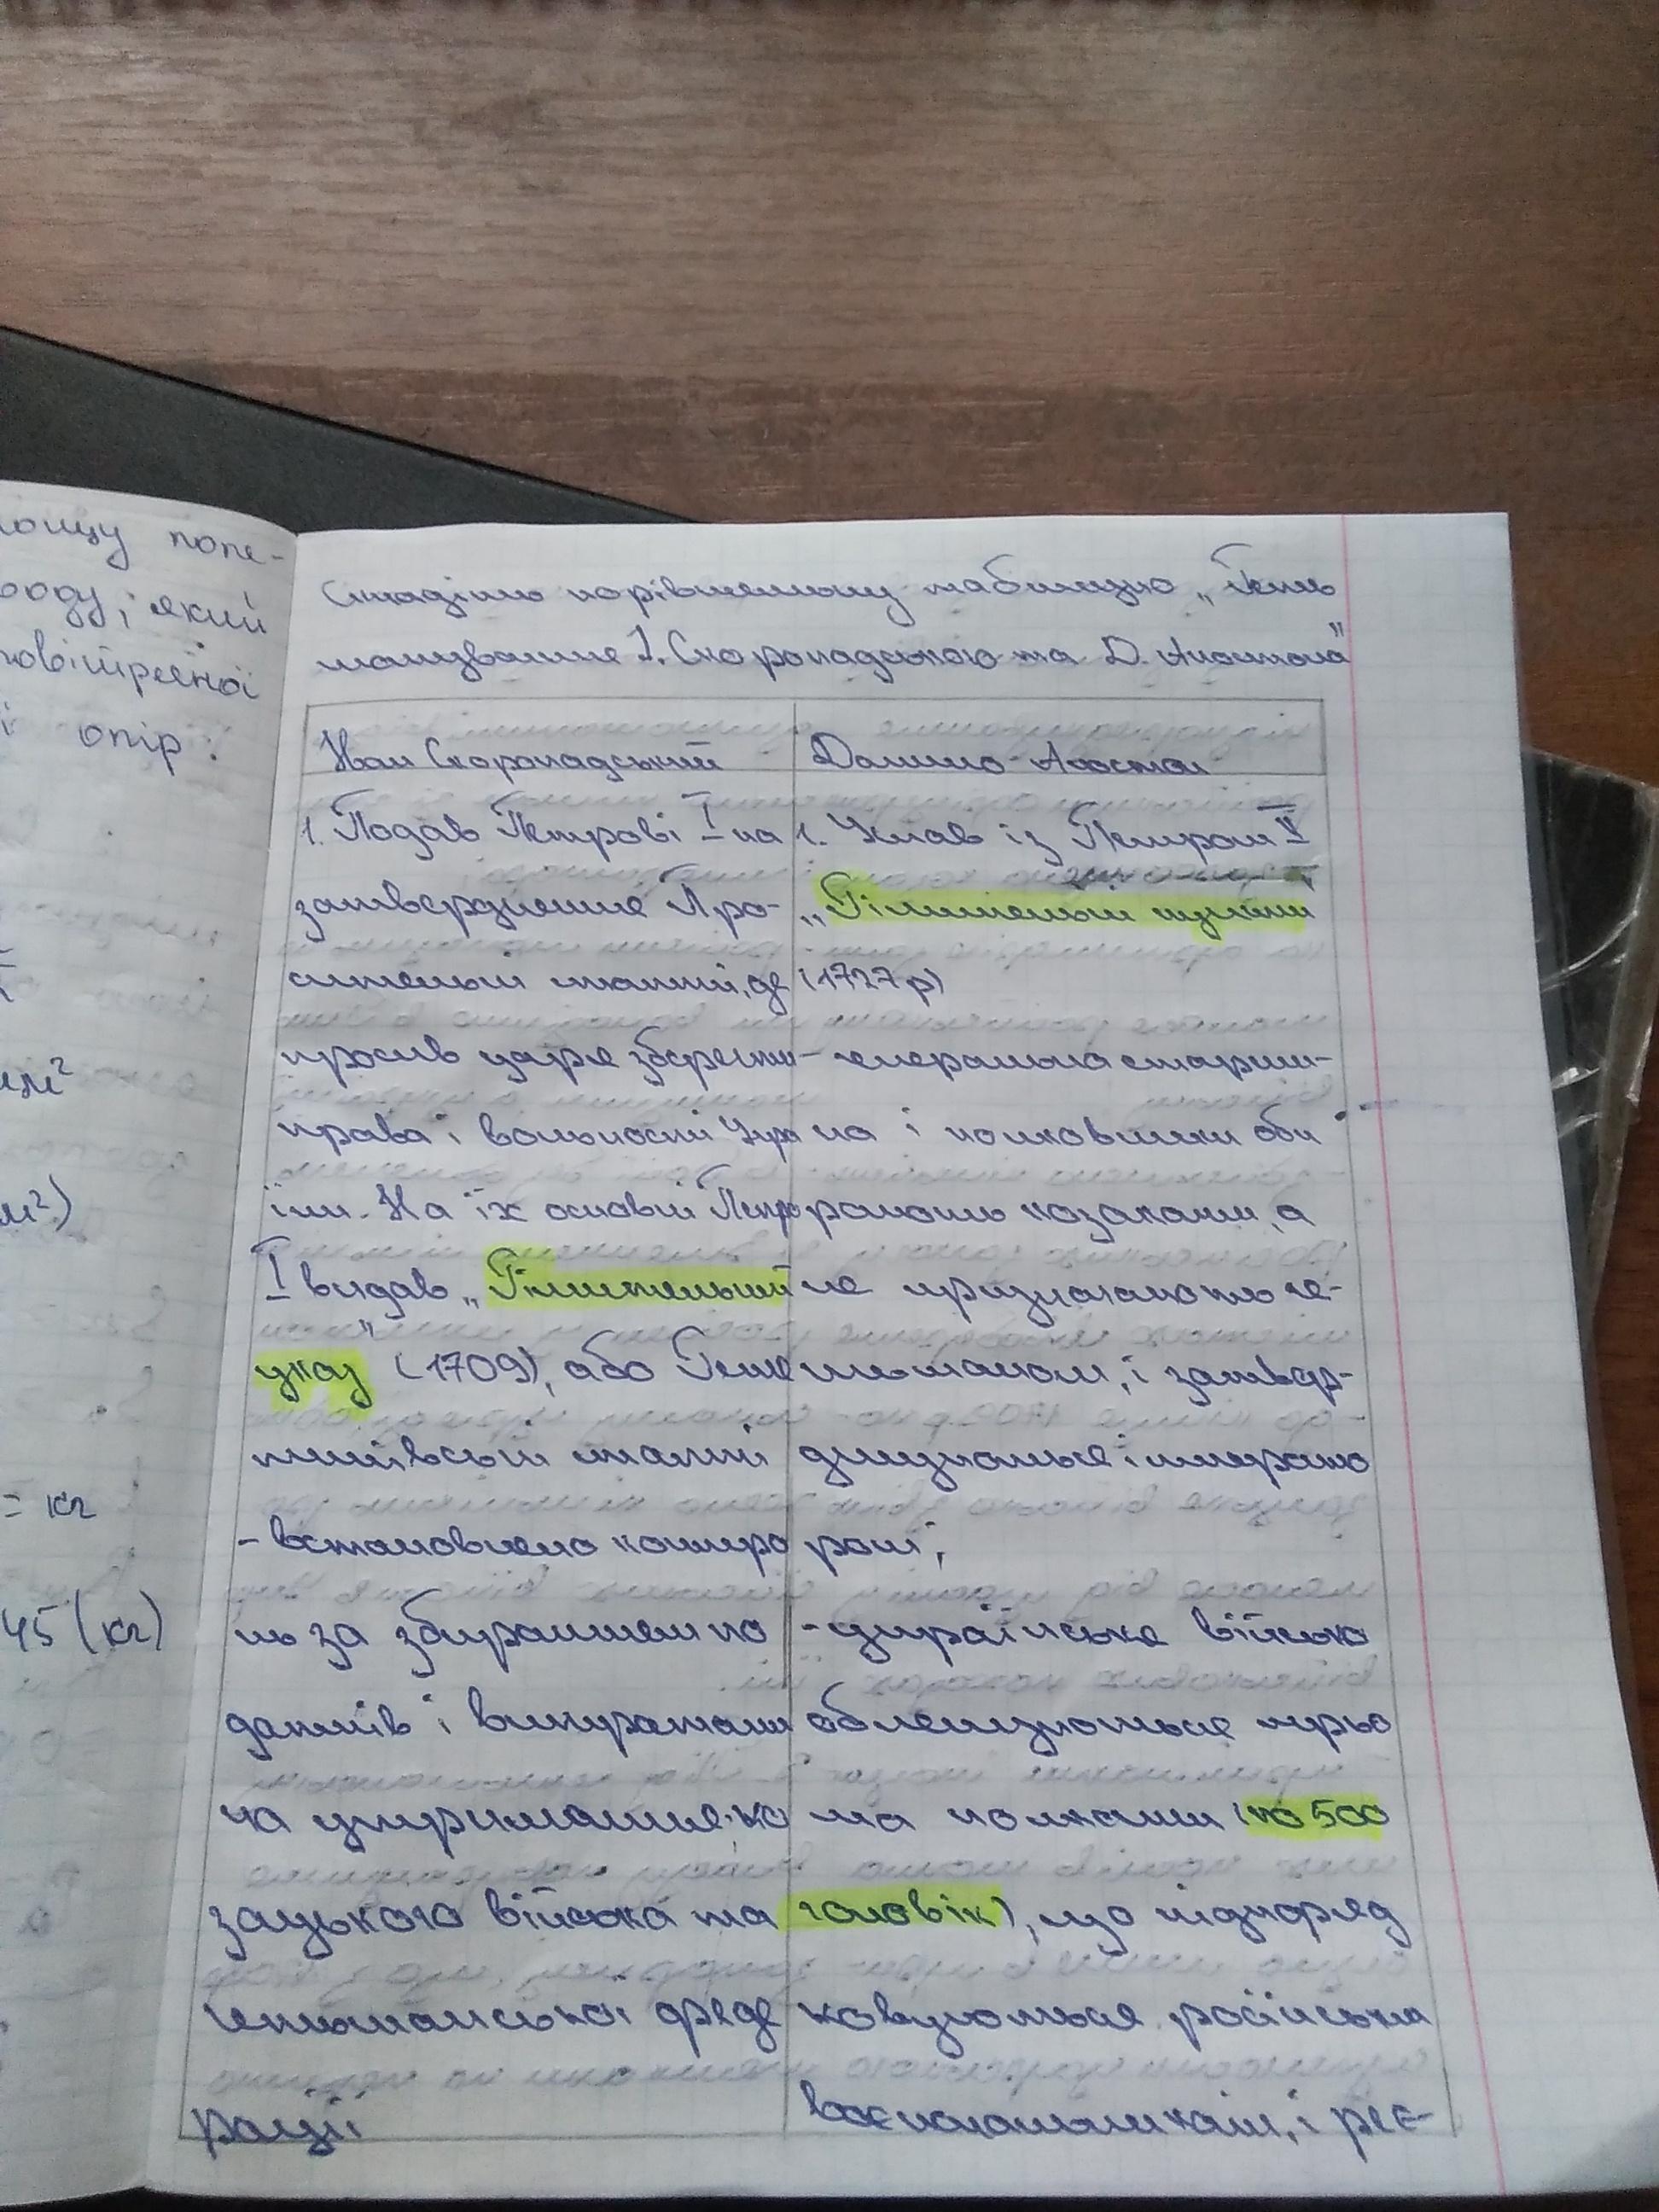 лощу попе-
роду, який
повітряної
і опір.
м²
м²)
= кг
45 (кг)
Складіть порівняльну таблицю „Геть
манування І. Скоропадського та Д. Апостола"
Іван Скоропадський
Данило Апостол
1. Подав Петрові І на
затвердження Про-
ситељні статті, де
просив царя зберегти
права і вольності Укра
їни. На їх основі Петро
І видав „Рішительний
указ" (1709), або Геть
статті
- встановлено контро
ль за збиранням по
датків і витратами
на утримання ко
зацького війська та
гетьманської
рації
1. Уклав із Петром ІІ
„Рішительні пункти
(1727 р)
- генеральна старши-
на і полковники оби
раються козаками, а
не призначаються ге-
тьманом, і затвер-
джуються імперато
ром;
- українське військо
обмежується трьо
ма полками (по 500
чоловік), що підпоряд
ковуються російським
воєначальникам, і реє-